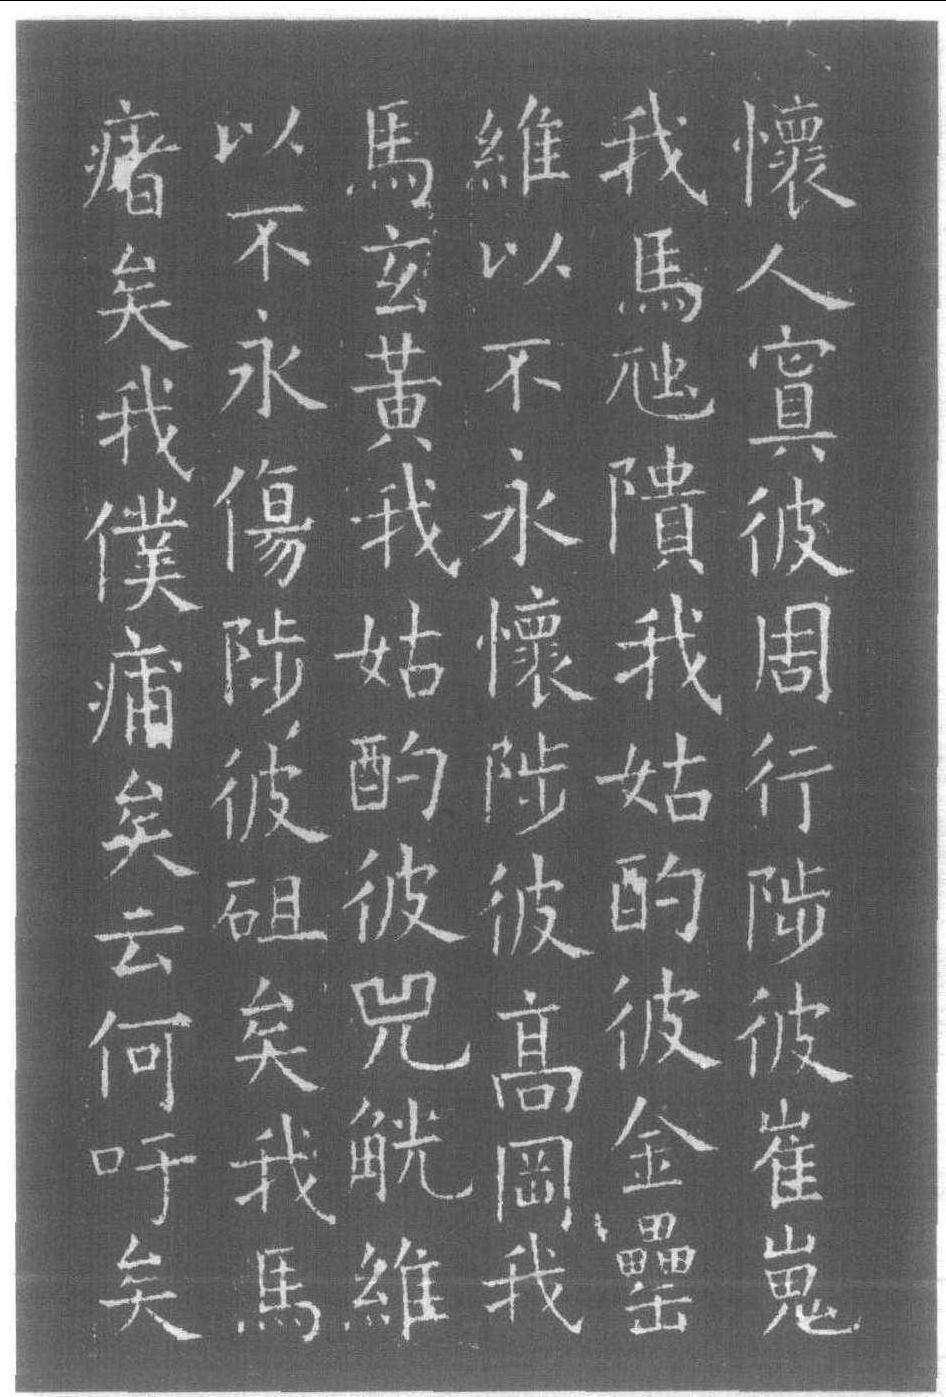 懷人寘彼周行陟彼崔嵬
我馬虺隤我姑酌彼金罍
維以不永懷陟彼高岡我
馬玄黃我姑酌彼兕觥維
以不永傷陟彼砠矣我馬
瘏矣我僕痡矣云何吁矣